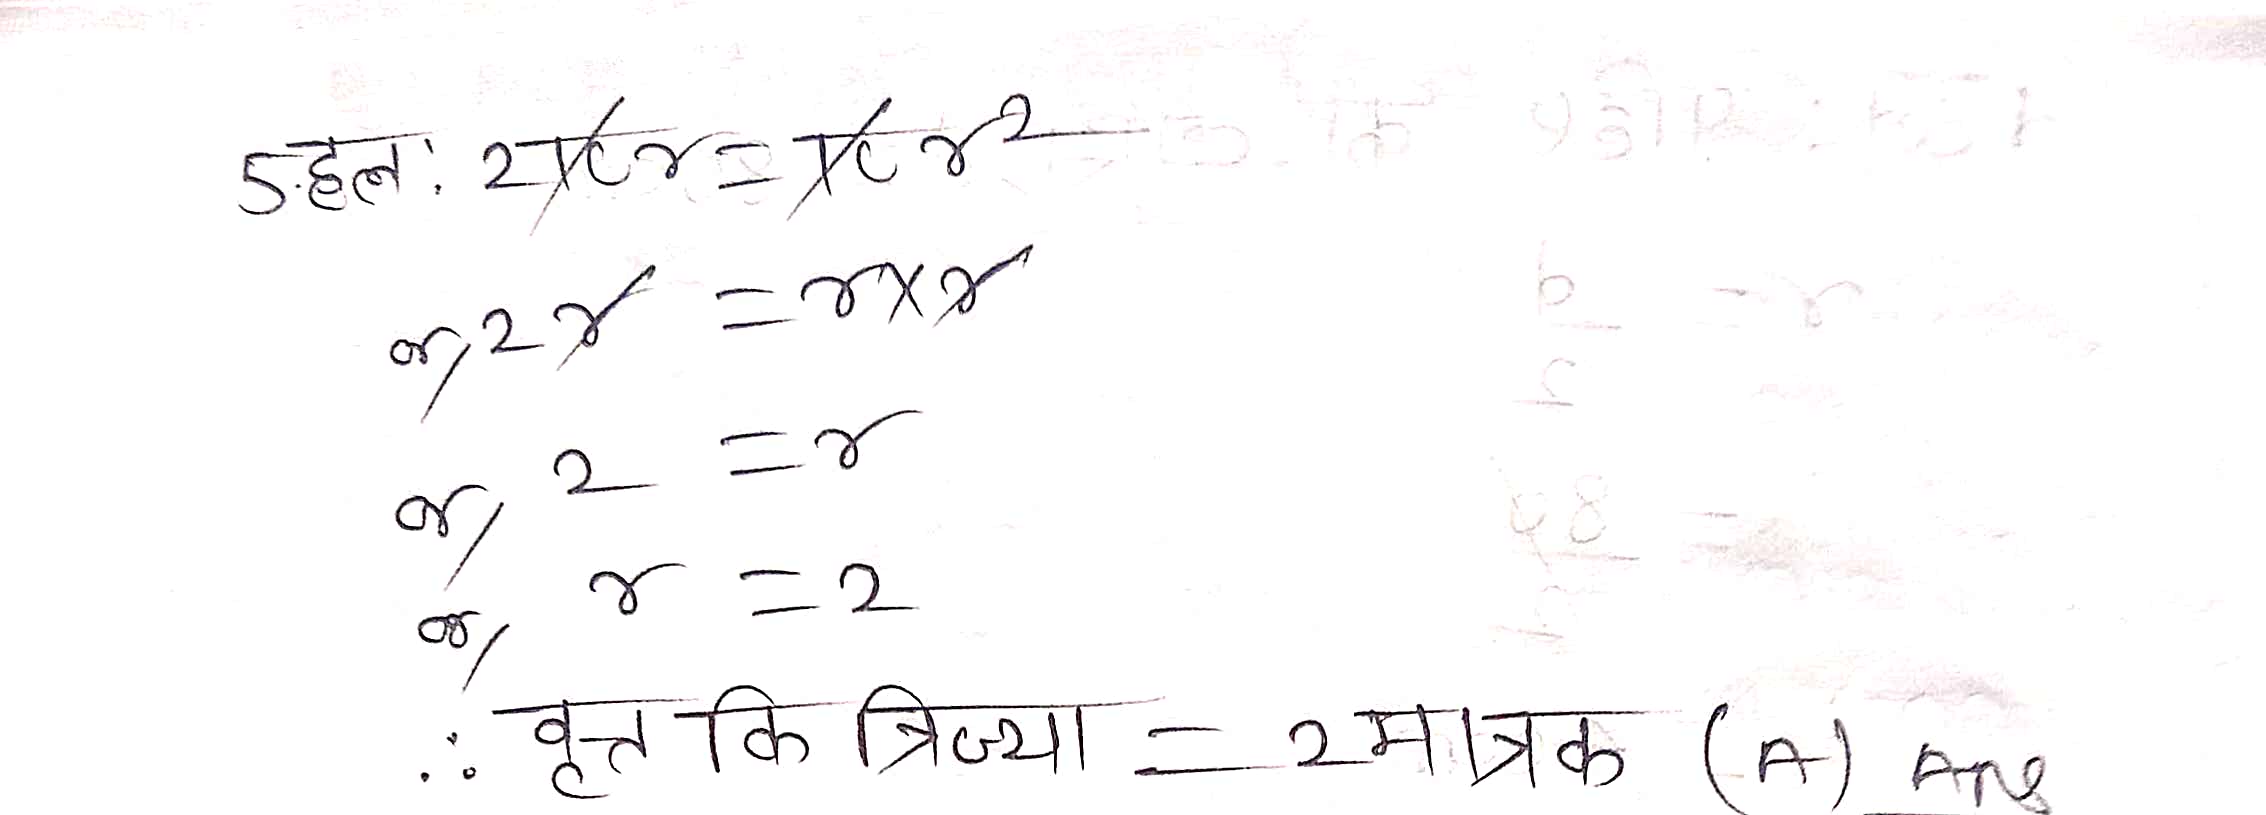 5.हल: 2πr = πr²
or, 2r = r×r
or, 2 = r
or, r = 2
∴ वृत्त कि त्रिज्या = 2मात्रक (A) Ans